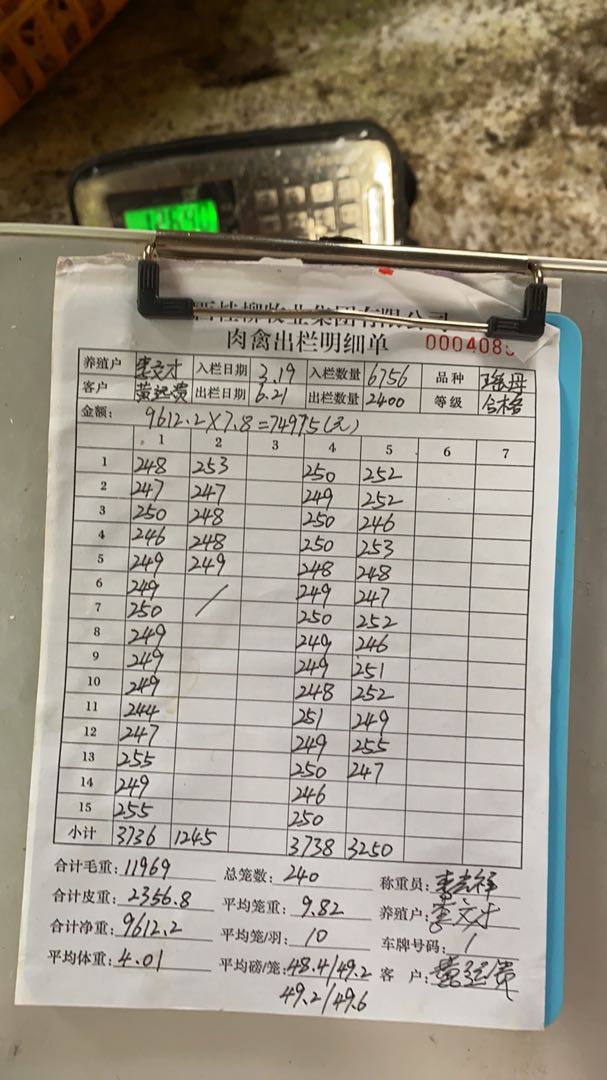 西桂柳牧业集团有限公司
肉禽出栏明细单 000408
养殖户 李文才 入栏日期 3.19 入栏数量 6756 品种 瑶母
客户 黄运贵 出栏日期 6.21 出栏数量 2400 等级 合格
金额: 9612.2×7.8=74975(元)
1 2 3 4 5 6 7
1 248 253 250 252
2 247 247 249 252
3 250 248 250 246
4 246 248 250 253
5 249 249 248 248
6 249 249 247
7 250 250 252
8 249 249 246
9 249 249 251
10 249 248 252
11 244 251 249
12 247 249 255
13 255 250 247
14 249 246
15 255 250
小计 3736 1245 3738 3250
合计毛重: 11969 总笼数: 240 称重员:
合计皮重: 2356.8 平均笼重: 9.82 养殖户: 李文才
合计净重: 9612.2 平均笼/羽: 10 车牌号码: /
平均体重: 4.01 平均磅/笼: 48.4/49.2 客户: 黄运贵
49.2/49.6